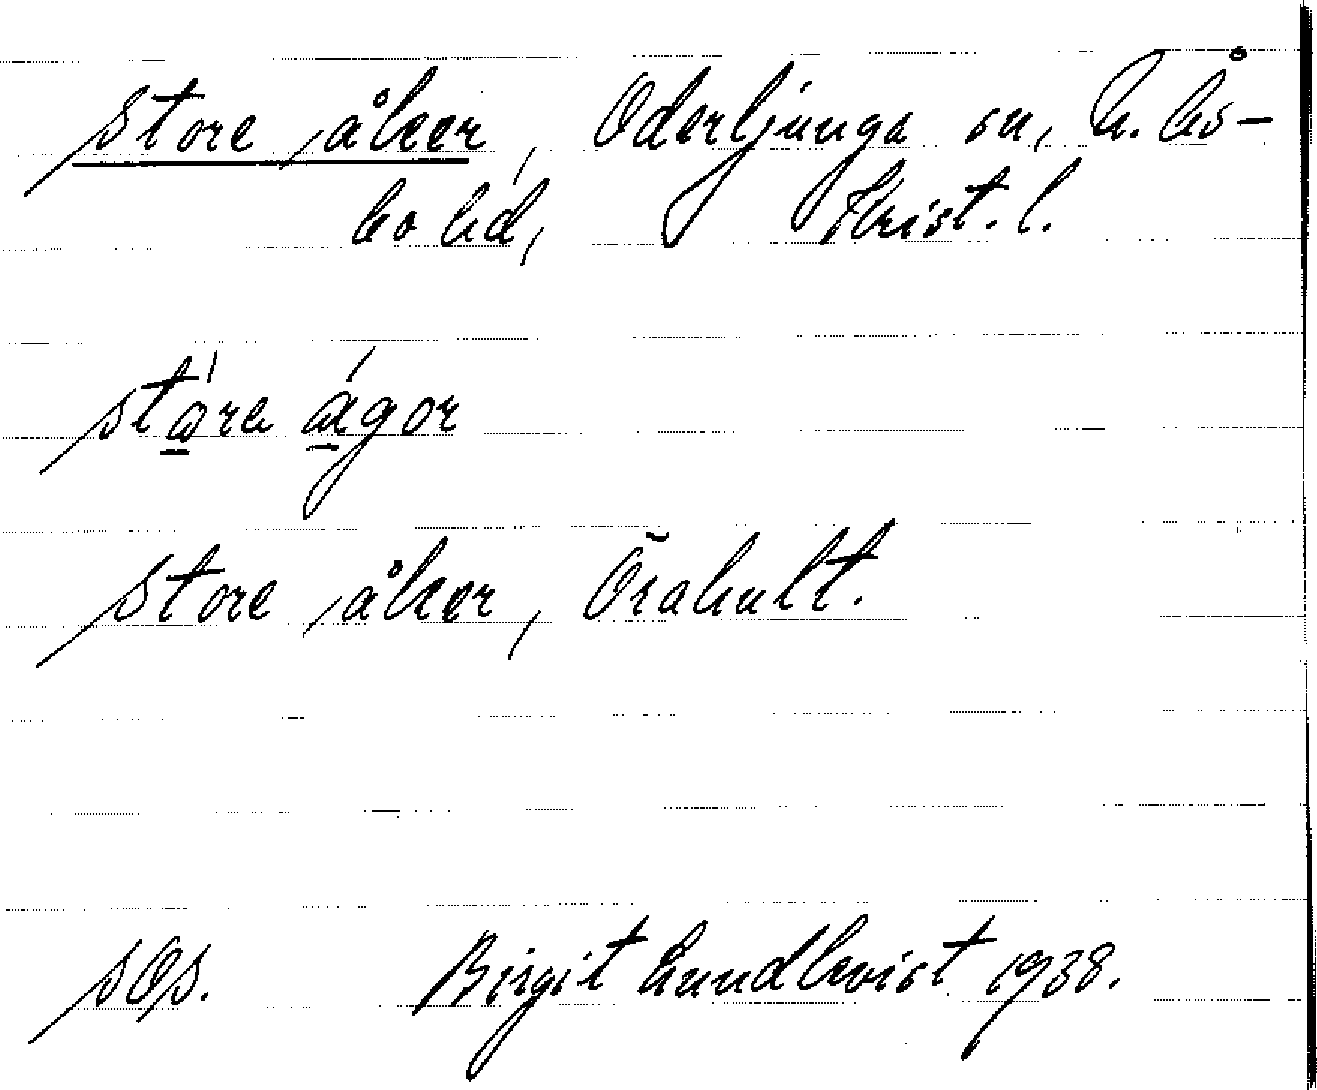 store åker, Oderljunga sn, N. Ås-
bo hd, Krist. l.
stó̠re á̠gor
store åker, Örahult.
sOs. Birgit Lundkvist 1938.